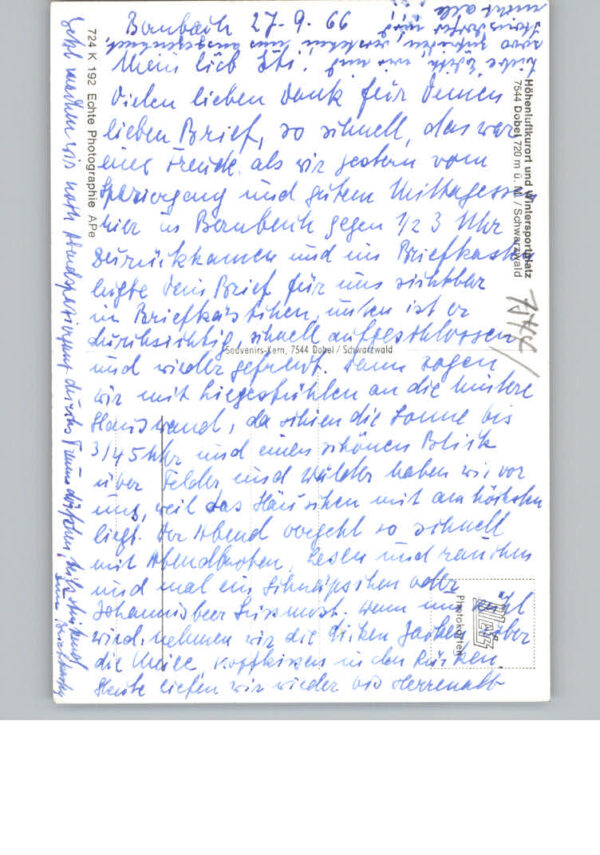 Bernbach 27-9.66
Mein lieb
Vielen lieben Dank für Deinen
lieben Brief, so schnell, das war
eine Freude, als wir gestern vom
Spaziergang und guten Mittagessen
hier in Bernbach gegen 1/2 3 Uhr
zurückkamen und im Briefkasten
liegte Dein Brief für uns sichtbar
im Briefkästchen, unten ist er
durchsichtig, schnell aufgeschlossen
und wieder gefreut. Dann zogen
wir mit Liegestühlen an die hintere
Hauswand, da schien die Sonne bis
3/4 5 Uhr und einen schönen Blick
über Felder und Wälder haben wir vor
uns, weil das Häuschen mit am höchsten
liegt. Der Abend vergeht so schnell
mit Abendbroten, Lesen und rauchen
und mal ein Schnäpschen oder
Johannisbeer Süssmost. Wenn uns kühl
wird, nehmen wir die dicken Jacken über
die Kopfkissen in den Rücken.
Heute liefen wir wieder bis Herrenalb
Jetzt machen wir noch Abendspaziergang durchs
zum Briefkasten
nicht alle
724 K 192 Echte Photographie APe
Höhenluftkurort und Wintersportplatz
7544 Dobel 720 m ü. M. / Schwarzwald
7544/
Souvenirs-Kern, 7544 Dobel / Schwarzwald
Metz
Photokarten